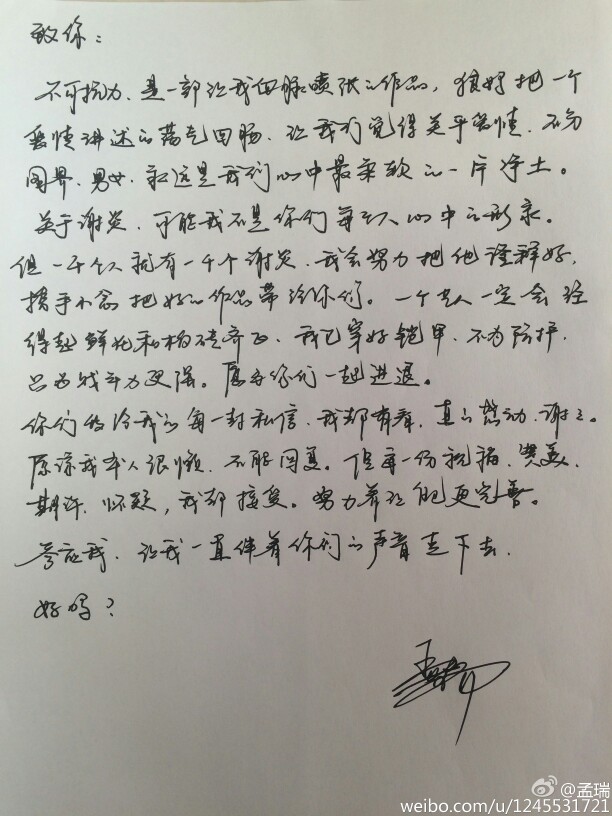 致你：
不可抗力，是一部让我血脉喷张的作品，狠好把一个
爱情讲述的荡气回肠，让我们觉得关乎爱情，不分
国界，男女，永远是我们心中最柔软的一片净土。
关于谢炎，可能我不是你们每个人心中的形象。
但一千个人就有一千个谢炎，我会努力把他诠释好，
携手小念把好的作品带给你们。一个艺人一定会经
得起鲜花和板砖齐飞，我已穿好铠甲，不为防护，
只为战斗力更强。愿与你们一起进退。
你们给我的每一封私信，我都有看，真的感动，谢谢。
原谅我本人很懒，不能回复。但每一份祝福，赞美，
期许，怀疑，我都接受。努力让自己更完善。
答应我，让我一直伴着你们的声音走下去，
好吗？
孟瑞
@孟瑞
weibo.com/u/1245531721